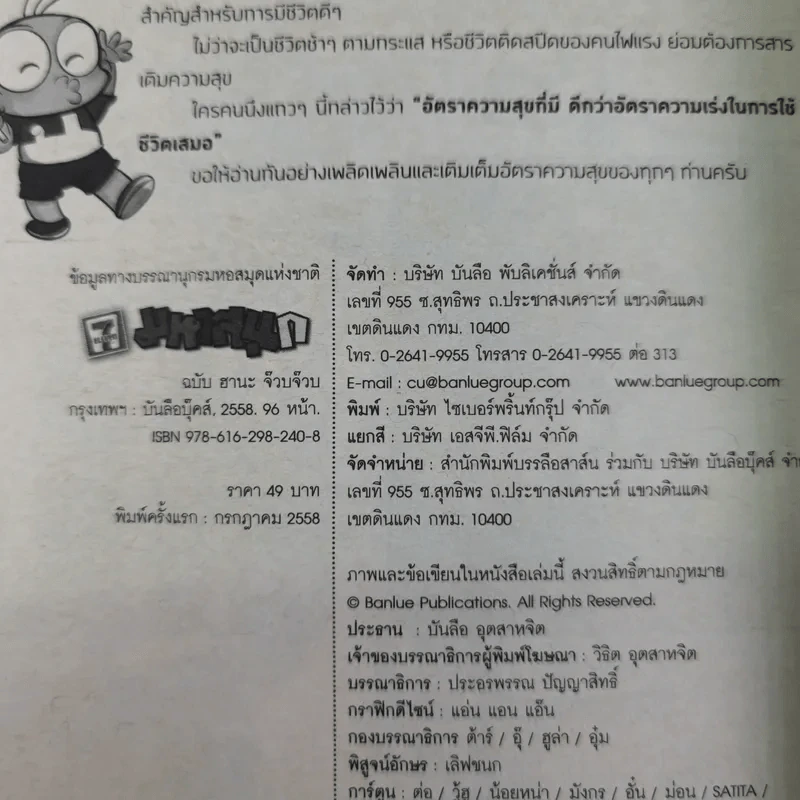 สำคัญสำหรับการมีชีวิตดีๆ
ไม่ว่าจะเป็นชีวิตช้าๆ ตามกระแส หรือชีวิตติดสปีดของคนไฟแรง ย่อมต้องการสาร
เติมความสุข
ใครคนนึงแถวๆ นี้กล่าวไว้ว่า "อัตราความสุขที่มี ดีกว่าอัตราความเร่งในการใช้
ชีวิตเสมอ"
ขอให้อ่านกันอย่างเพลิดเพลินและเติมเต็มอัตราความสุขของทุกๆ ท่านครับ
ข้อมูลทางบรรณานุกรมหอสมุดแห่งชาติ
7 ELEVEN มหาสนุก
ฉบับ ฮานะ จ๊วบจ๊วบ
กรุงเทพฯ : บันลือบุ๊คส์, 2558. 96 หน้า.
ISBN 978-616-298-240-8
ราคา 49 บาท
พิมพ์ครั้งแรก : กรกฎาคม 2558
จัดทำ : บริษัท บันลือ พับลิเคชั่นส์ จำกัด
เลขที่ 955 ซ.สุทธิพร ถ.ประชาสงเคราะห์ แขวงดินแดง
เขตดินแดง กทม. 10400
โทร. 0-2641-9955 โทรสาร 0-2641-9955 ต่อ 313
E-mail : cu@banluegroup.com www.banluegroup.com
พิมพ์ : บริษัท ไซเบอร์พริ้นท์กรุ๊ป จำกัด
แยกสี : บริษัท เอสจีพี.ฟิล์ม จำกัด
จัดจำหน่าย : สำนักพิมพ์บรรลือสาส์น ร่วมกับ บริษัท บันลือบุ๊คส์
เลขที่ 955 ซ.สุทธิพร ถ.ประชาสงเคราะห์ แขวงดินแดง
เขตดินแดง กทม. 10400
ภาพและข้อเขียนในหนังสือเล่มนี้ สงวนสิทธิ์ตามกฎหมาย
© Banlue Publications. All Rights Reserved.
ประธาน : บันลือ อุตสาหจิต
เจ้าของบรรณาธิการผู้พิมพ์โฆษณา : วิธิต อุตสาหจิต
บรรณาธิการ : ประอรพรรณ ปัญญาสิทธิ์
กราฟิกดีไซน์ : แอ่น แอน แอ๊น
กองบรรณาธิการ ต้าร์ / อุ๊ / ฮูล่า / อุ๋ม
พิสูจน์อักษร : เลิฟขนก
การ์ตูน : ต่อ / วุ้ฮ / น้อยหน่า / มังกร / อั๋น / ม่อน / SATITA /